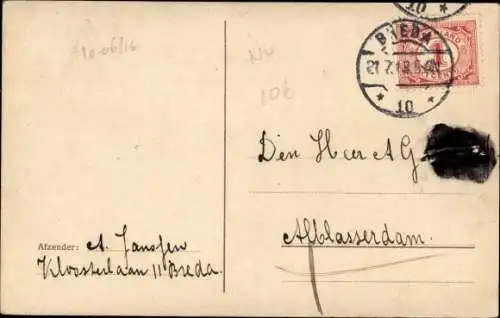 10-06/16
NV
10€
BREDA
10
Den Heer A G
Alblasserdam.
Afzender: A. Janssen
Kloosterlaan 11 Breda.